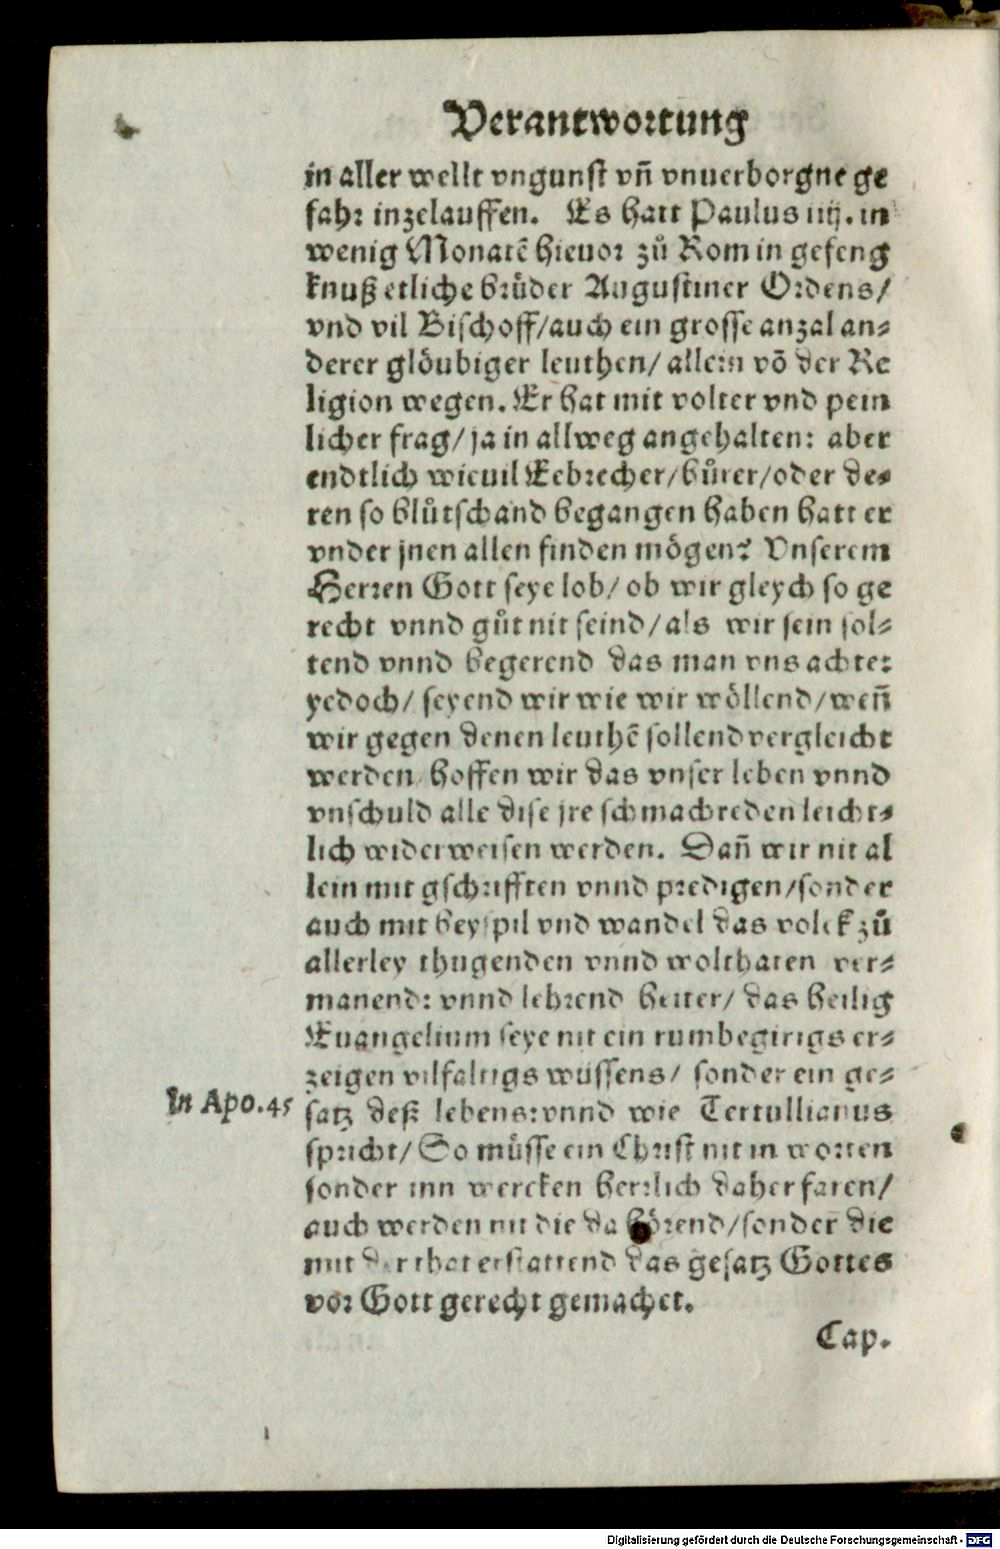 Verantwortung
in aller wellt vngunst vñ vnuerborgne ge
fahr inzelauffen. Es hatt Paulus iiij. in
wenig Monatē hieuor zů Rom in gefeng
knuß etliche brůder Augustiner Ordens/
vnd vil Bischoff/auch ein grosse anzal an⸗
derer glöubiger leuthen/ allein vō der Re
ligion wegen. Er hat mit volter vnd pein
licher frag/ ja in allweg angehalten: aber
endtlich wieuil Eebrecher/ hůrer/oder de⸗
ren so blůtschand begangen haben hatt er
vnder jnen allen finden mögen? Vnserem
Herren Gott seye lob/ ob wir gleych so ge
recht vnnd gůt nit seind/als wir sein sol⸗
tend vnnd begerend das man vns achte:
yedoch/ seyend wir wie wir wöllend/weñ
wir gegen denen leuthē sollend vergleicht
werden/ hoffen wir das vnser leben vnnd
vnschuld alle dise jre schmachreden leicht⸗
lich widerweisen werden. Dañ wir nit al
lein mit gschrifften vnnd predigen/sonder
auch mit beyspil vnd wandel das volck zů
allerley thugenden vnnd wolthaten ver⸗
manend: vnnd lehrend heiter/ das heilig
Euangelium seye nit ein rumbegirigs er⸗
zeigen vilfaltigs wüssens/ sonder ein ge⸗
In Apo. 45
satz deß lebens: vnnd wie Tertullianus
spricht/ So müsse ein Christ nit in worten
sonder inn wercken herrlich daher faren/
auch werden nit die da hörend/sonder die
mit der that erstattend das gesatz Gottes
vor Gott gerecht gemachet.
Cap.
Digitalisierung gefördert durch die Deutsche Forschungsgemeinschaft - DFG